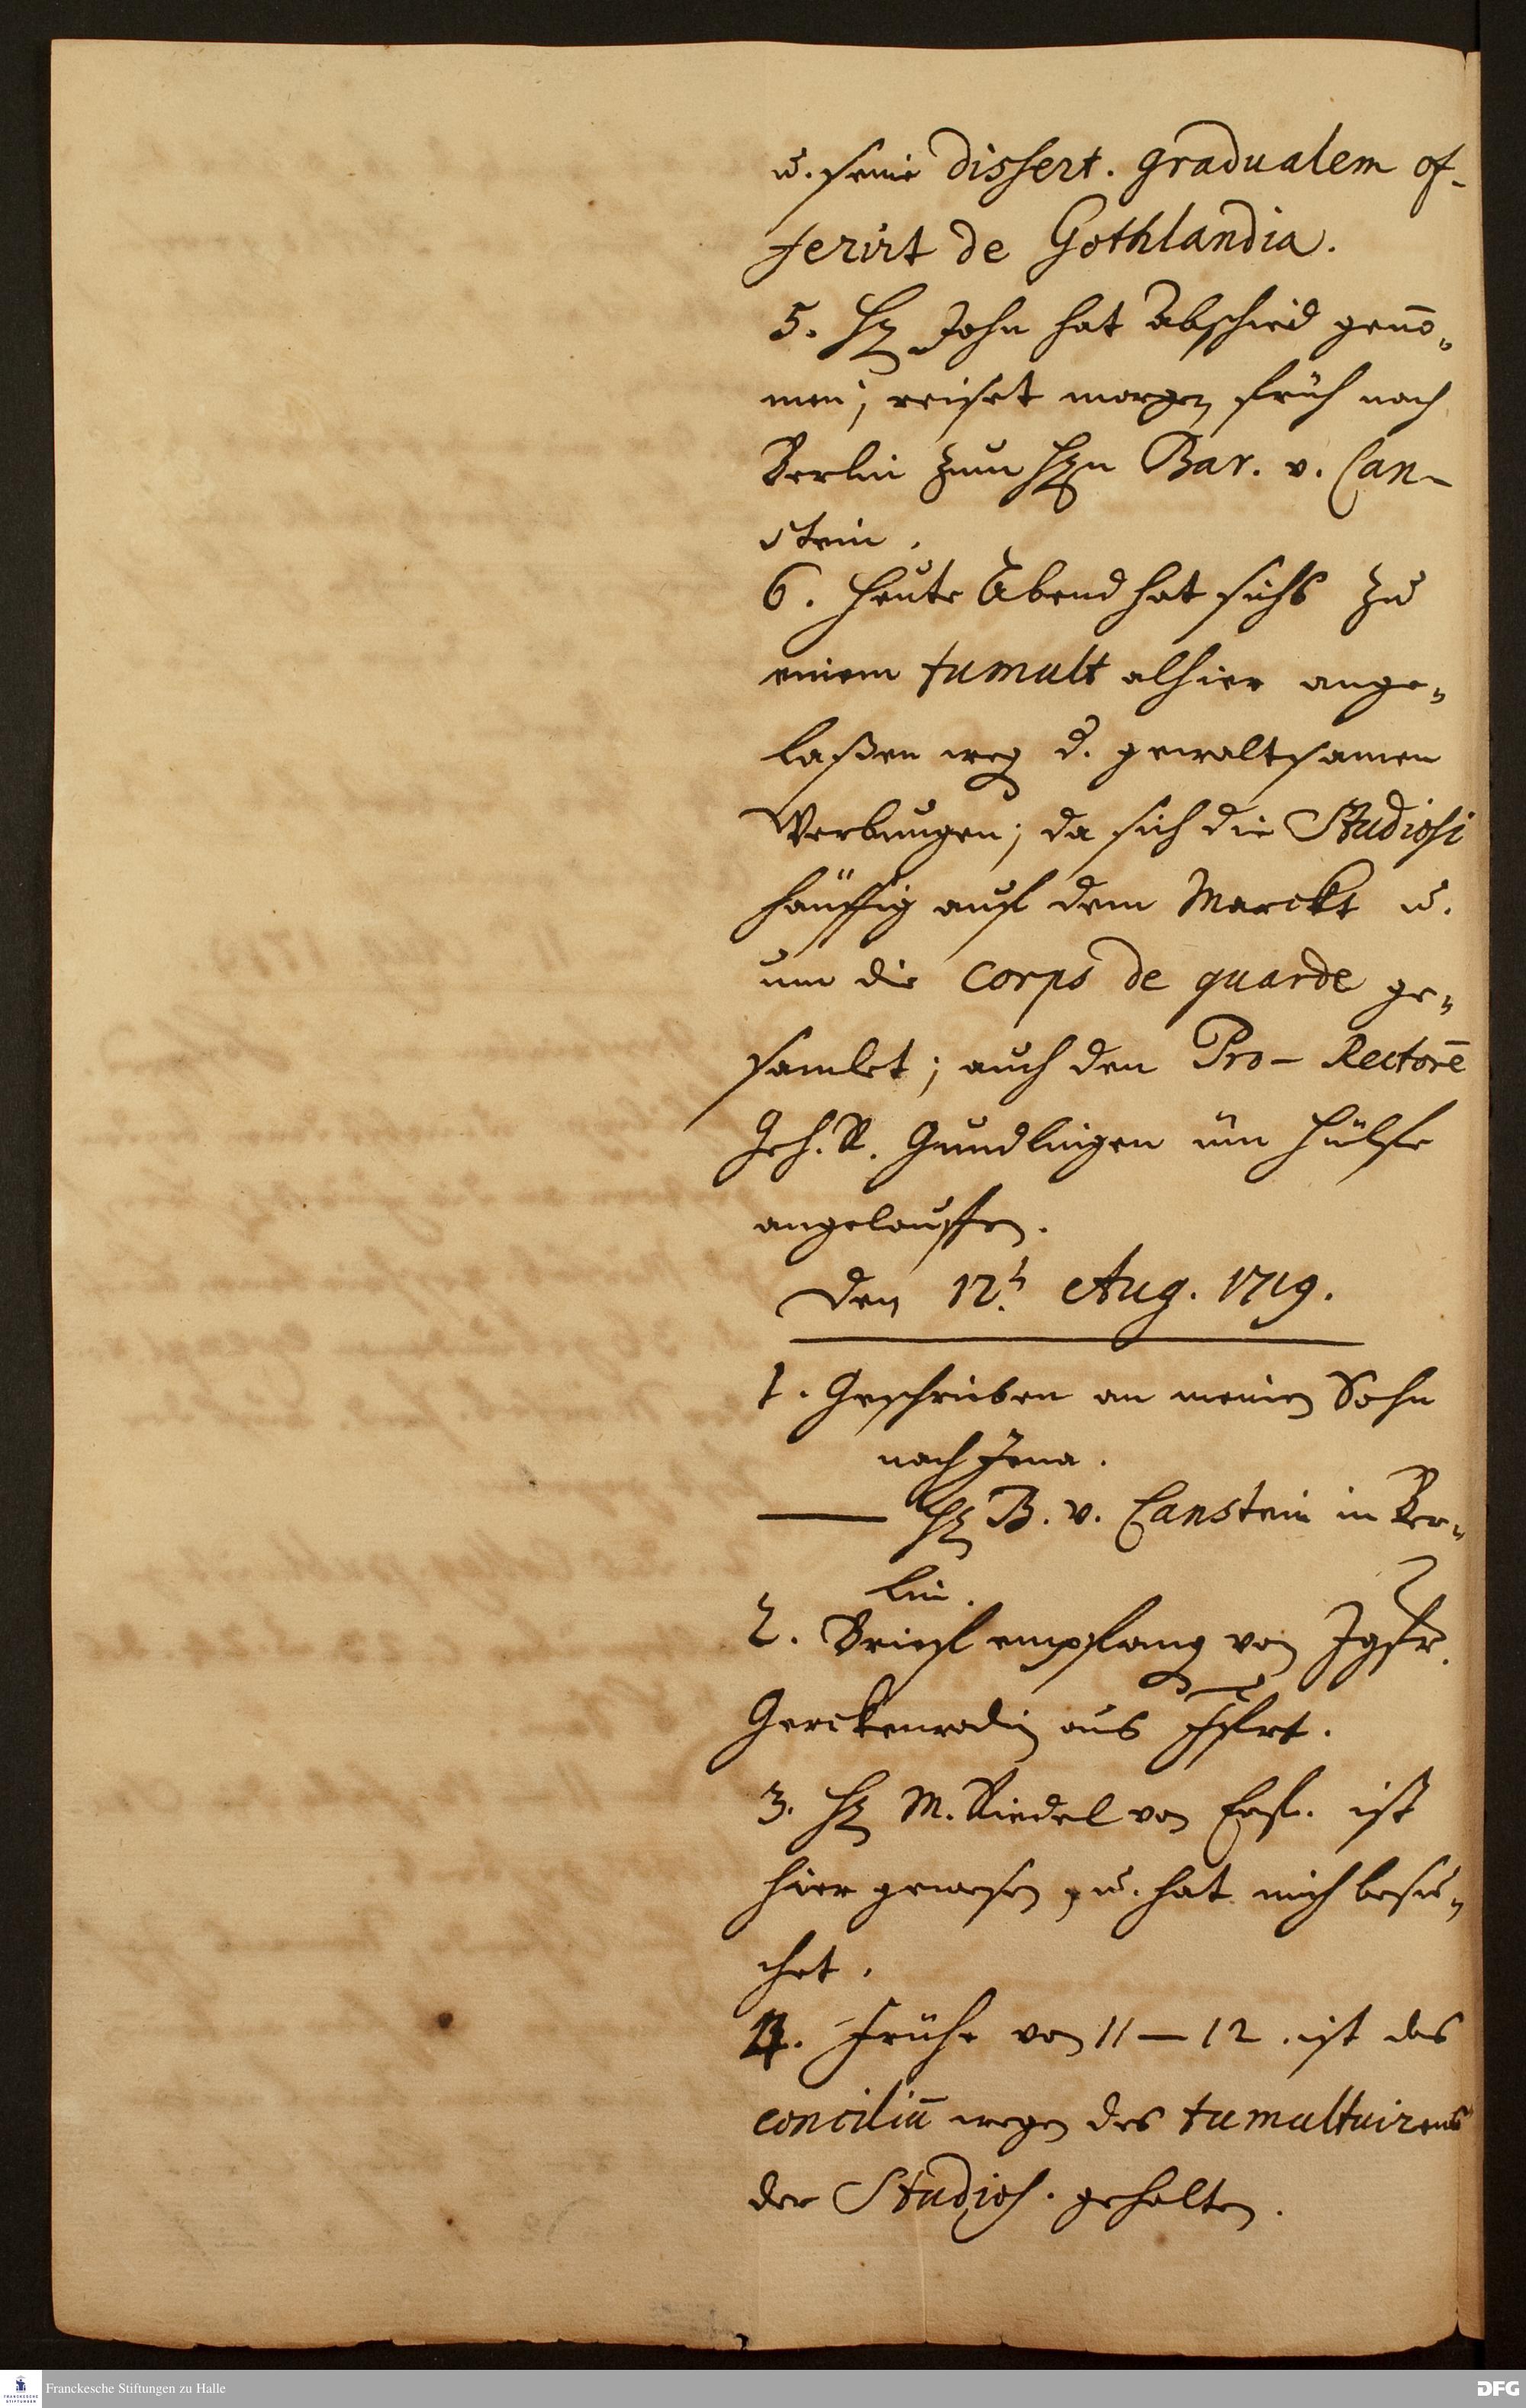 u. seine dissert. gradualem of-
ferirt de Gothlandia.
5. Hr John hat Abschied geno̅-
men; reiset morgen früh nach
Berlin zum Hrn Bar. v. Can-
stein.
6. Heute Abend hat sichs zu
einem tumult alhier ange-
laßen weg d. gewaltsamen
Werbungen; da sich die Studiosi
häuffig auf dem Marckt u.
um die Corps de guarde ge-
samlet; auch den Pro-Rectore̅
Geh. R. Gundlingen üm Hülfe
angelauffen.
Den 12. Aug. 1719.
1. Geschrieben an meinen Sohn
nach Jena.
— Hr B. v. Canstein in Ber-
lin.
2. Brief empfang von Jgfr.
Gerckenrodin aus
3. Hr M. Riedel von Erf. ist
hier gewesen, u. hat mich besu-
chet.
4. Frühe von 11–12. ist das
conciliu̅ wegen des tumultuirens
der Studios. gehalten.
Franckesche Stiftungen zu Halle
FRANCKESCHE
STIFTUNGEN
DFG